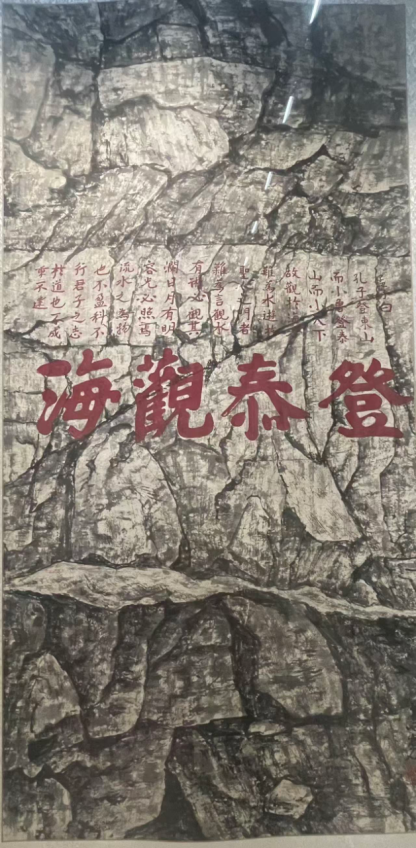 孟子曰
孔子登東山
而小魯登泰
山而小天下
故觀於海者
難為水遊於
聖人之門者
難為言觀水
有術必觀其
瀾日月有明
容光必照焉
流水之為物
也不盈科不
行君子之志
於道也不成
章不達
登泰觀海